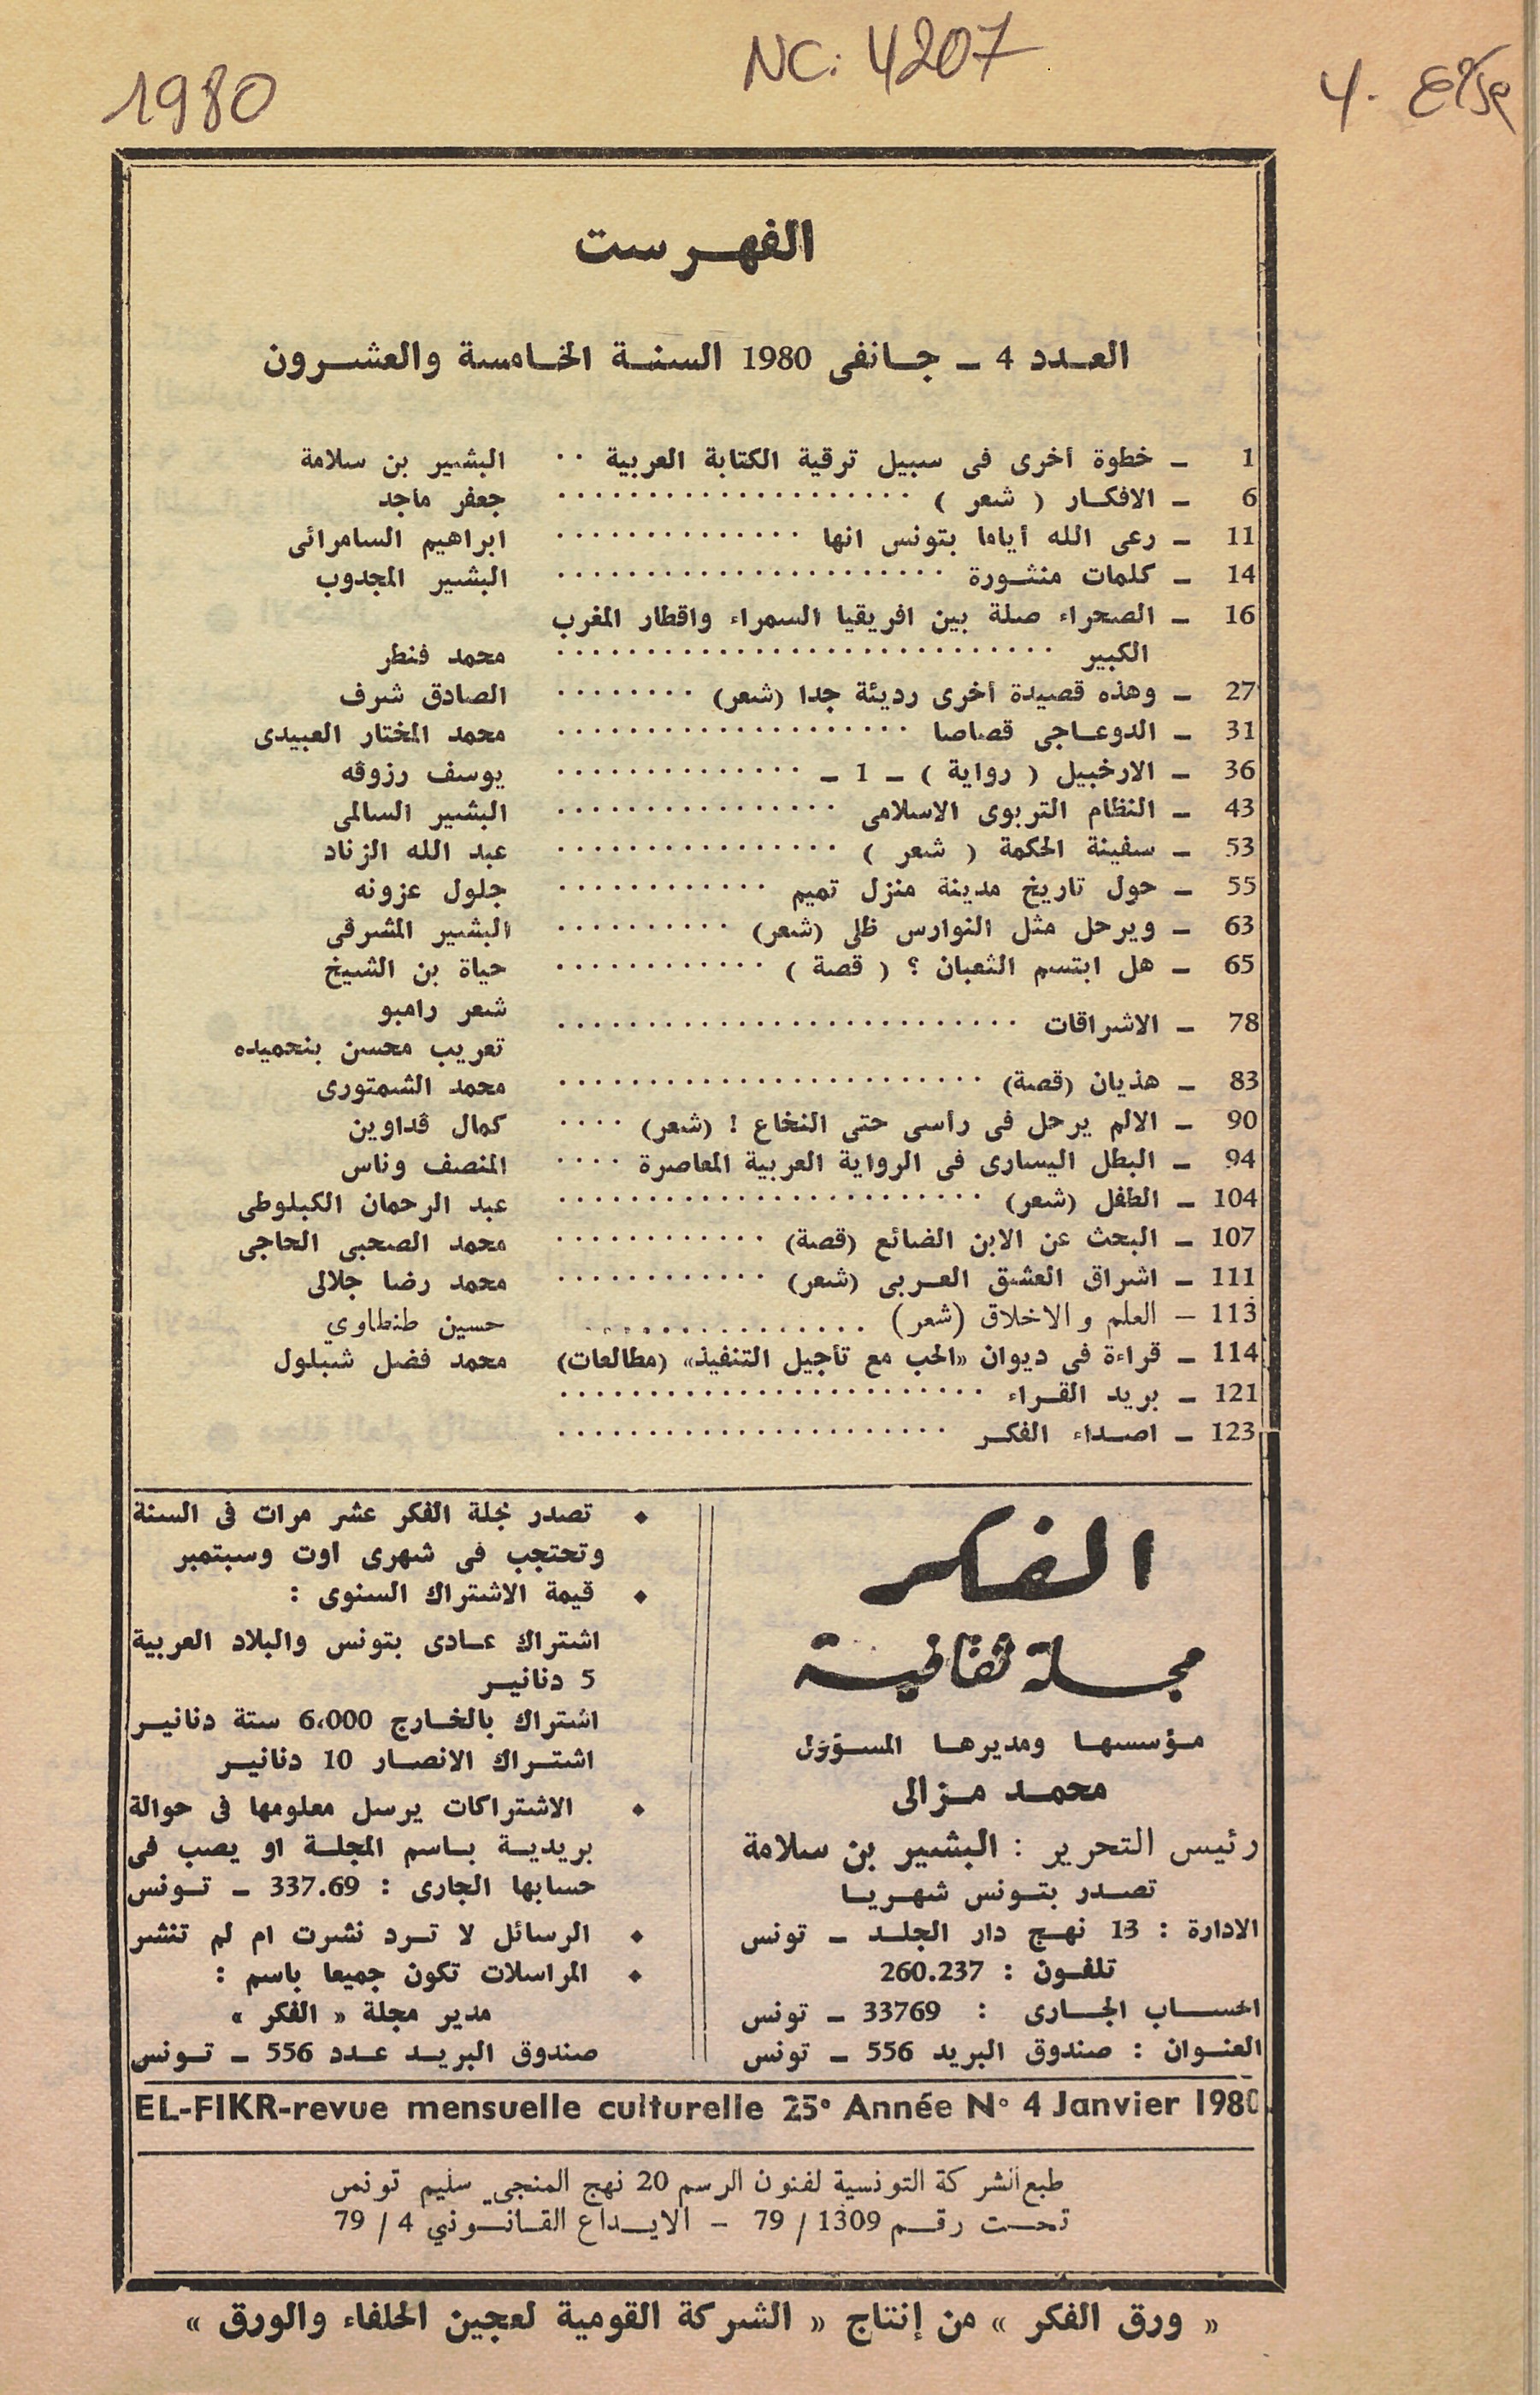 1980
NC: 4207
4.
الفهرست
العدد 4 ـ جانفى 1980 السنة الخامسة والعشرون
1 ـ خطوة أخرى فى سبيل ترقية الكتابة العربية ٠٠ البشير بن سلامة
6 ـ الافكار ( شعر ) ٠٠٠٠٠٠٠٠ جعفر ماجد
11 ـ رعى الله أياما بتونس انها ٠٠٠٠٠٠٠٠ ابراهيم السامرائى
14 ـ كلمات منثورة ٠٠٠٠٠٠٠٠ البشير المجدوب
16 ـ الصحراء صلة بين افريقيا السمراء واقطار المغرب
الكبير ٠٠٠٠٠٠٠٠ محمد فنطر
27 ـ وهذه قصيدة أخرى رديئة جدا (شعر) ٠٠٠٠٠٠٠٠ الصادق شرف
31 ـ الدوعاجى قصاصا ٠٠٠٠٠٠٠٠ محمد المختار العبيدى
36 ـ الارخبيل ( رواية ) ـ 1 ـ ٠٠٠٠٠٠٠٠ يوسف رزوقه
43 ـ النظام التربوى الاسلامى ٠٠٠٠٠٠٠٠ البشير السالمى
53 ـ سفينة الحكمة ( شعر ) ٠٠٠٠٠٠٠٠ عبد الله الزناد
55 ـ حول تاريخ مدينة منزل تميم ٠٠٠٠٠٠٠٠ جلول عزونه
63 ـ ويرحل مثل النوارس ظلى (شعر) ٠٠٠٠٠٠٠٠ البشير المشرقى
65 ـ هل ابتسم الثعبان ؟ ( قصة ) ٠٠٠٠٠٠٠٠ حياة بن الشيخ
78 ـ الاشراقات ٠٠٠٠٠٠٠٠ شعر رامبو
تعريب محسن بنحميده
83 ـ هذيان (قصة) ٠٠٠٠٠٠٠٠ محمد الشمتورى
90 ـ الالم يرحل فى رأسى حتى النخاع ! (شعر) ٠٠٠٠ كمال ڤداوين
94 ـ البطل اليسارى فى الرواية العربية المعاصرة ٠٠٠٠ المنصف وناس
104 ـ الطفل (شعر) ٠٠٠٠٠٠٠٠ عبد الرحمان الكبلوطى
107 ـ البحث عن الابن الضائع (قصة) ٠٠٠٠٠٠٠٠ محمد الصحبى الحاجى
111 ـ اشراق العشق العربى (شعر) ٠٠٠٠٠٠٠٠ محمد رضا جلالى
113 ـ العلم والاخلاق (شعر) ٠٠٠٠٠٠٠٠ حسين طنطاوي
114 ـ قراءة فى ديوان «الحب مع تأجيل التنفيذ» (مطالعات) محمد فضل شبلول
121 ـ بريد القراء ٠٠٠٠٠٠٠٠
123 ـ اصداء الفكر ٠٠٠٠٠٠٠٠
الفكر
مجلة ثقافية
مؤسسها ومديرها المسؤول
محمد مزالى
رئيس التحرير : البشير بن سلامة
تصدر بتونس شهريا
الادارة : 13 نهج دار الجلد ـ تونس
تلفون : 260.237
الحساب الجارى : 33769 ـ تونس
العنوان : صندوق البريد 556 ـ تونس
♦ تصدر مجلة الفكر عشر مرات فى السنة
وتحتجب فى شهرى اوت وسبتمبر
♦ قيمة الاشتراك السنوى :
اشتراك عادى بتونس والبلاد العربية
5 دنانير
اشتراك بالخارج 6،000 ستة دنانير
اشتراك الانصار 10 دنانير
♦ الاشتراكات يرسل معلومها فى حوالة
بريدية باسم المجلة او يصب فى
حسابها الجارى : 337.69 ـ تونس
♦ الرسائل لا ترد نشرت ام لم تنشر
♦ المراسلات تكون جميعا باسم :
مدير مجلة « الفكر »
صندوق البريد عدد 556 ـ تونس
EL-FIKR-revue mensuelle culturelle 25° Année N° 4 Janvier 1980
طبع الشركة التونسية لفنون الرسم 20 نهج المنجي سليم تونس
تحت رقم 1309 / 79 - الايداع القانوني 4 / 79
« ورق الفكر » من إنتاج « الشركة القومية لعجين الحلفاء والورق »